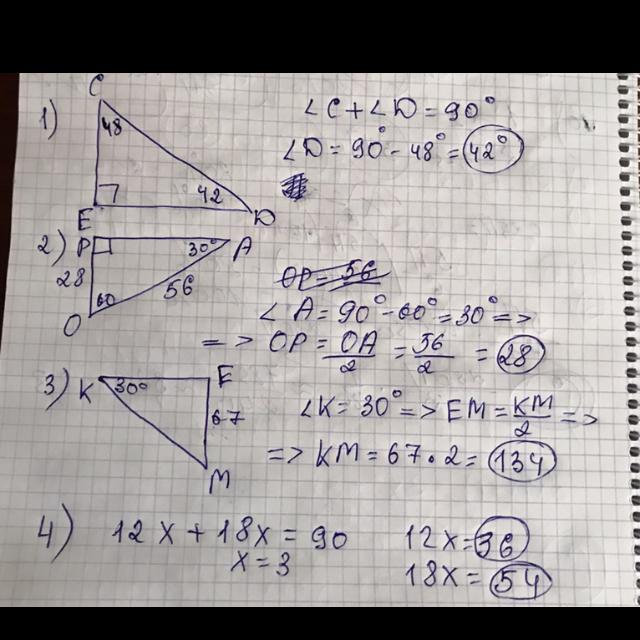 1)
C
48
E
42
D
∠C + ∠D = 90°
∠D = 90° - 48° = 42°
2) P
30°
A
28
56
60
O
OP = 56
∠A = 90° - 60° = 30° =>
=> OP = OA/2 = 56/2 = 28
3) K
30°
E
67
M
∠K = 30° => EM = KM/2 =>
=> KM = 67 · 2 = 134
4) 12x + 18x = 90
x = 3
12x = 36
18x = 54